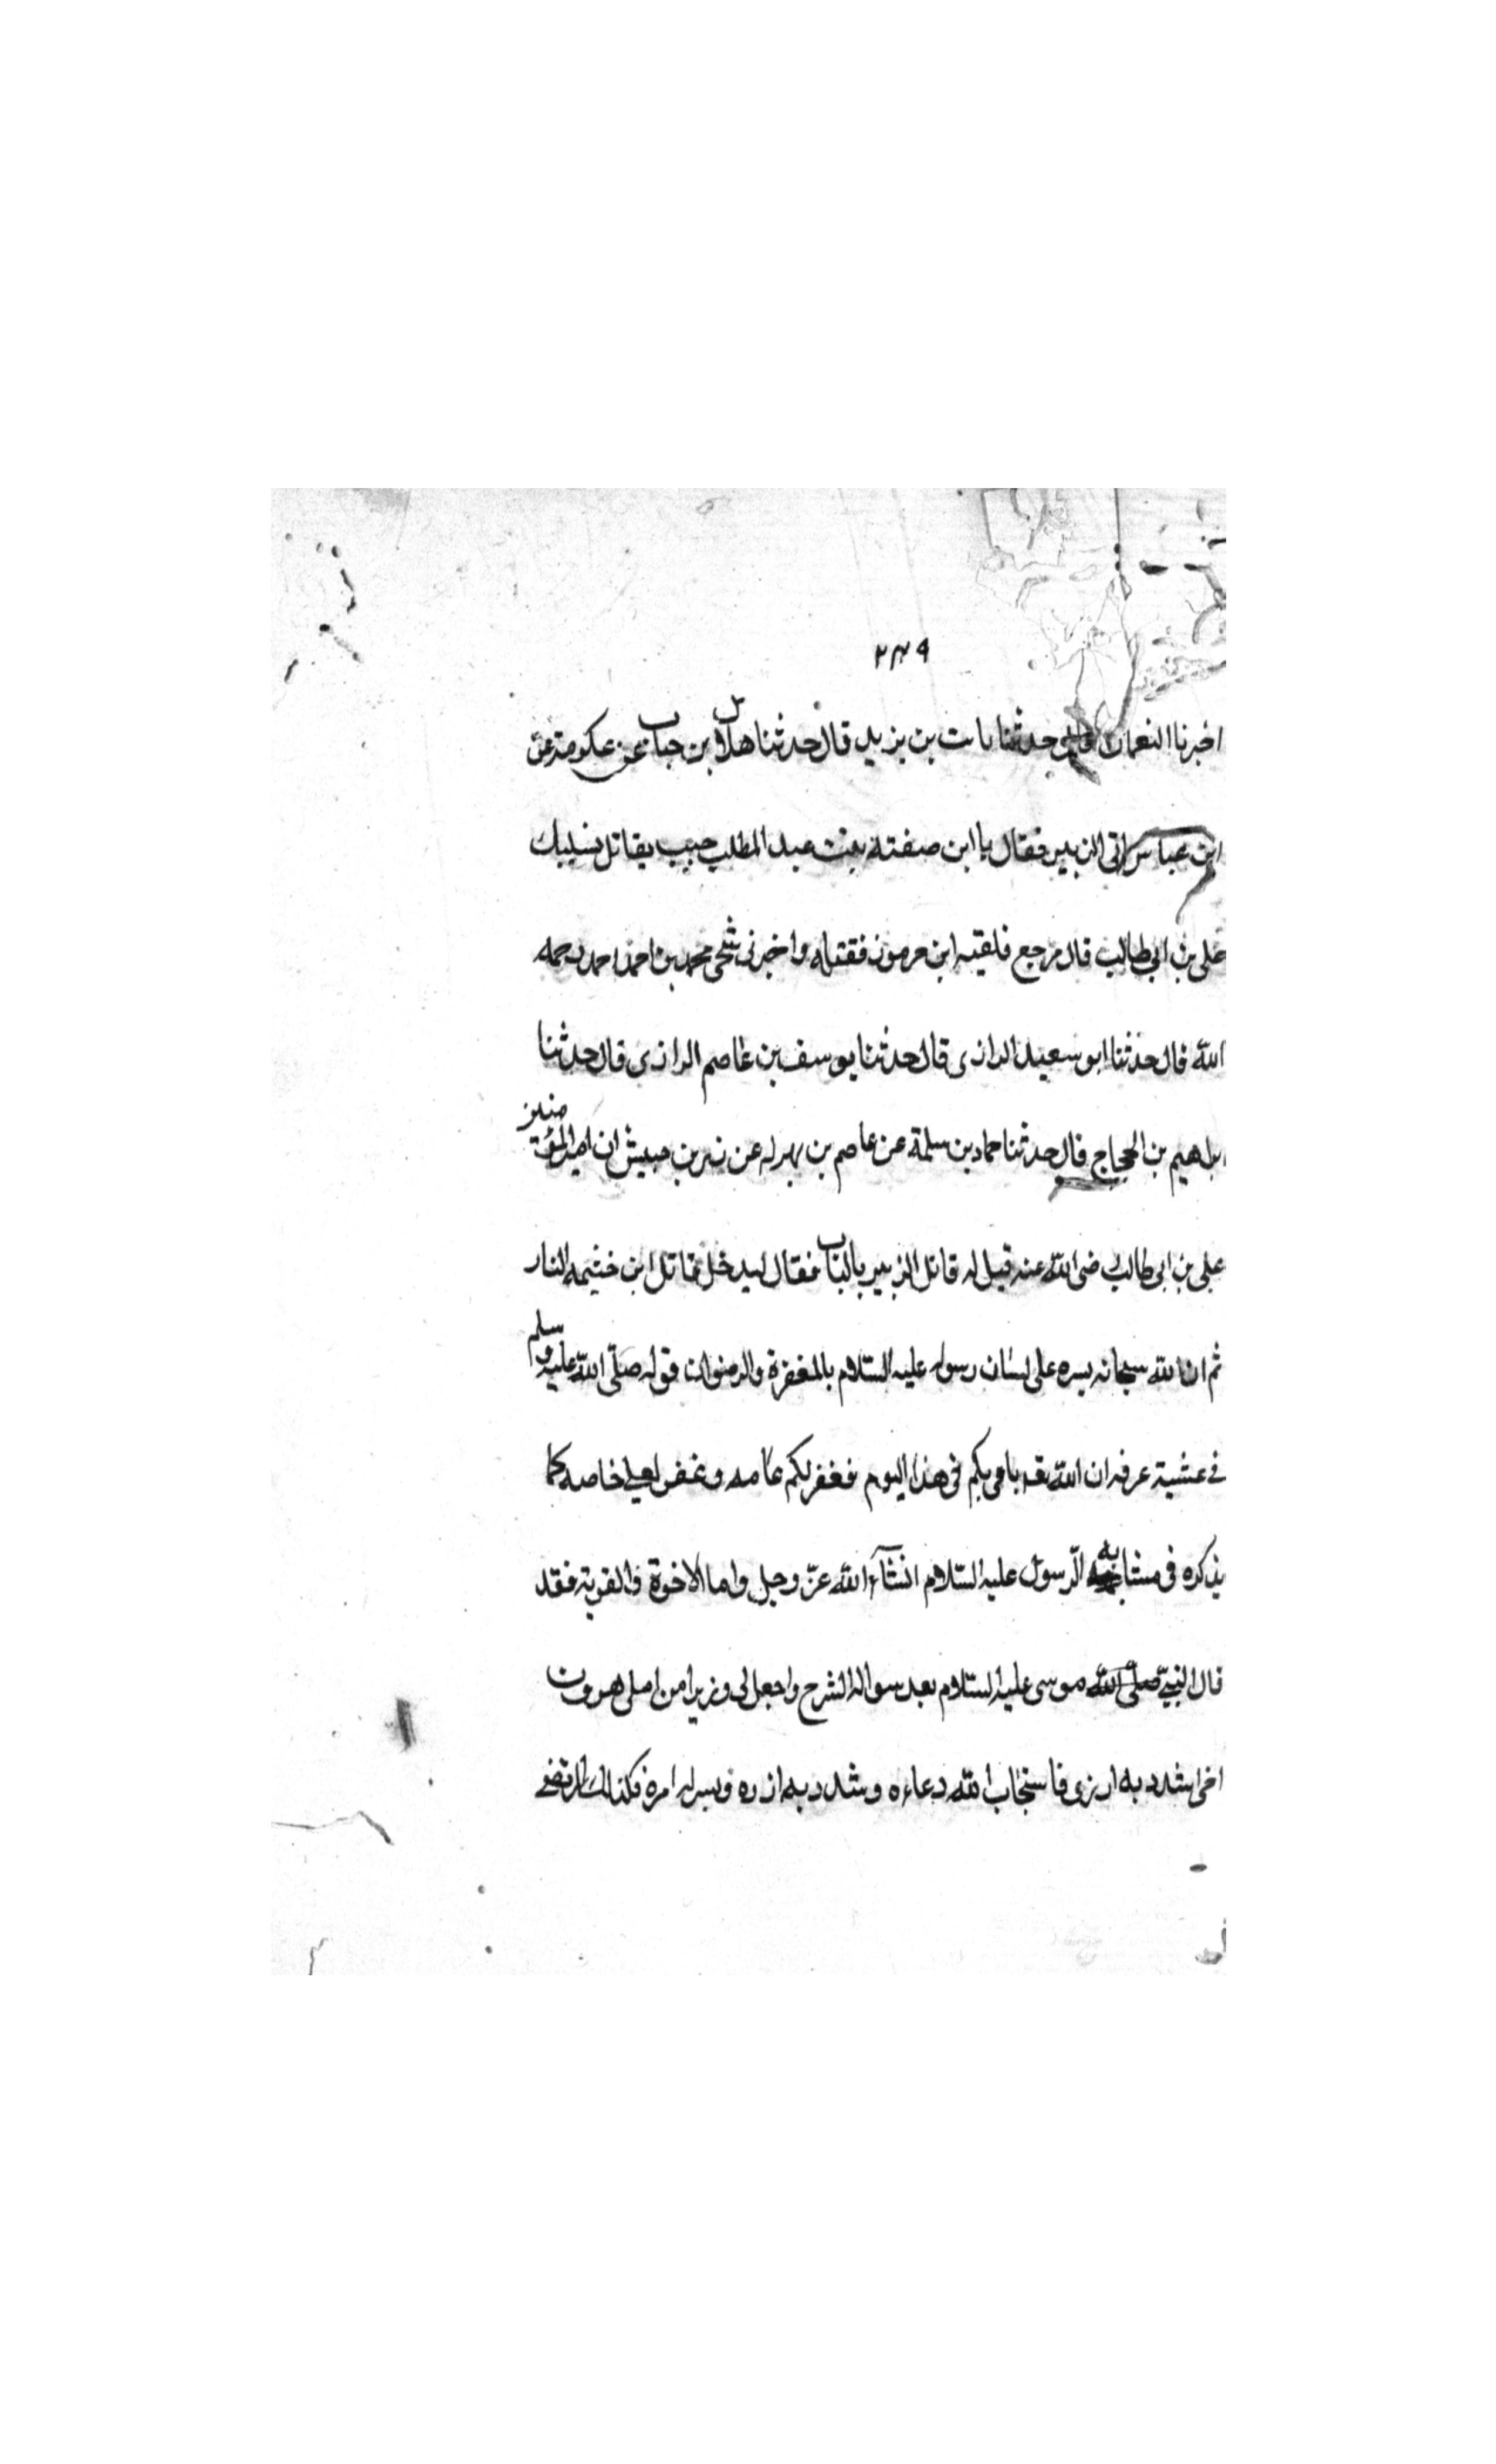 ٢٤٩
اخبرنا النعمان قال حدثنا ثابت بن يزيد قال حدثنا هلال بن خباب عن عكرمة عن
ابن عباس اتى الزبير فقال يا ابن صفته بنت عبد المطلب حبيب يقاتل بسليك
على بن ابى طالب قال مرجع فلقيه ابن جرموز فقتله واخبرنى شيخى محمد بن احمد احمد رحمه
الله قال حدثنا ابو سعيد الرازى قال حدثنا يوسف بن عاصم الرازى قال حدثنا
ابراهيم بن الحجاج قال حدثنا حماد بن سلمة عن عاصم بن بهدله عن زر بن حبيش ان امير المؤمنين
على بن ابى طالب رضى الله عنه قيل له قاتل الزبير بالباب فقال ليدخل قاتل ابن خثيمه النار
ثم ان الله سبحانه يسره على لسان رسوله عليه السّلام بالمغفرة والرضوان قوله صلّى الله عليه وسلم
فى عشية عرفه ان الله تعه باهى بكم فى هذا اليوم فغفر لكم عامه وغفر لعلى خاصه كما
يذكره فى مشابه الرّسول عليه السّلام انشآء الله عزّ وجل واما الاخوة والقربة فقد
قال النبىّ صلّى الله موسى عليه السّلام بعد سواله الشرح واجعل لى وزيرا من اهلى هرون
اخى اشدد به ازرى فاستجاب الله دعاءه وشدد به ازره ويسر له امره فكذلك المرتضى